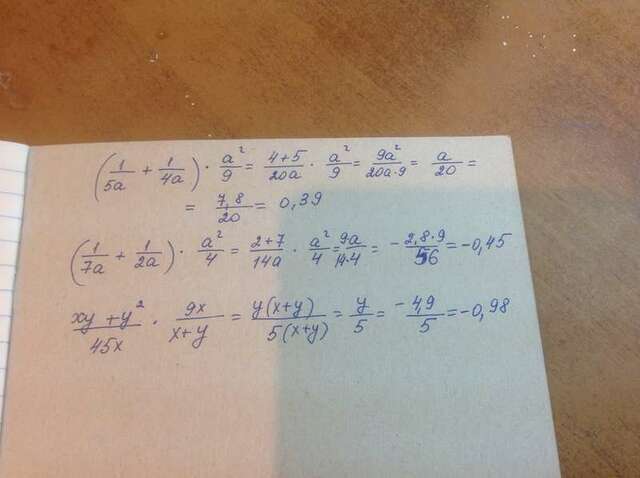 (1/5a + 1/4a) · a²/9 = 4+5/20a · a²/9 = 9a²/20a·9 = a/20 =
= 7,8/20 = 0,39
(1/7a + 1/2a) · a²/4 = 2+7/14a · a²/4 = 9a/14·4 = -2,8·9/56 = -0,45
xy+y²/45x · 9x/x+y = y(x+y)/5(x+y) = y/5 = -4,9/5 = -0,98